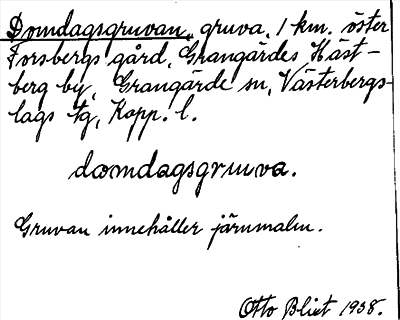 Domdagsgruvan, gruva, 1 km. öster
Forsbergs gård, Grangärdes Häst-
berg by, Grangärde sn, Västerbergs-
lags tg, Kopp. l.
domdagsgruva.
Gruvan innehåller järnmalm.
Otto Blixt 1938.